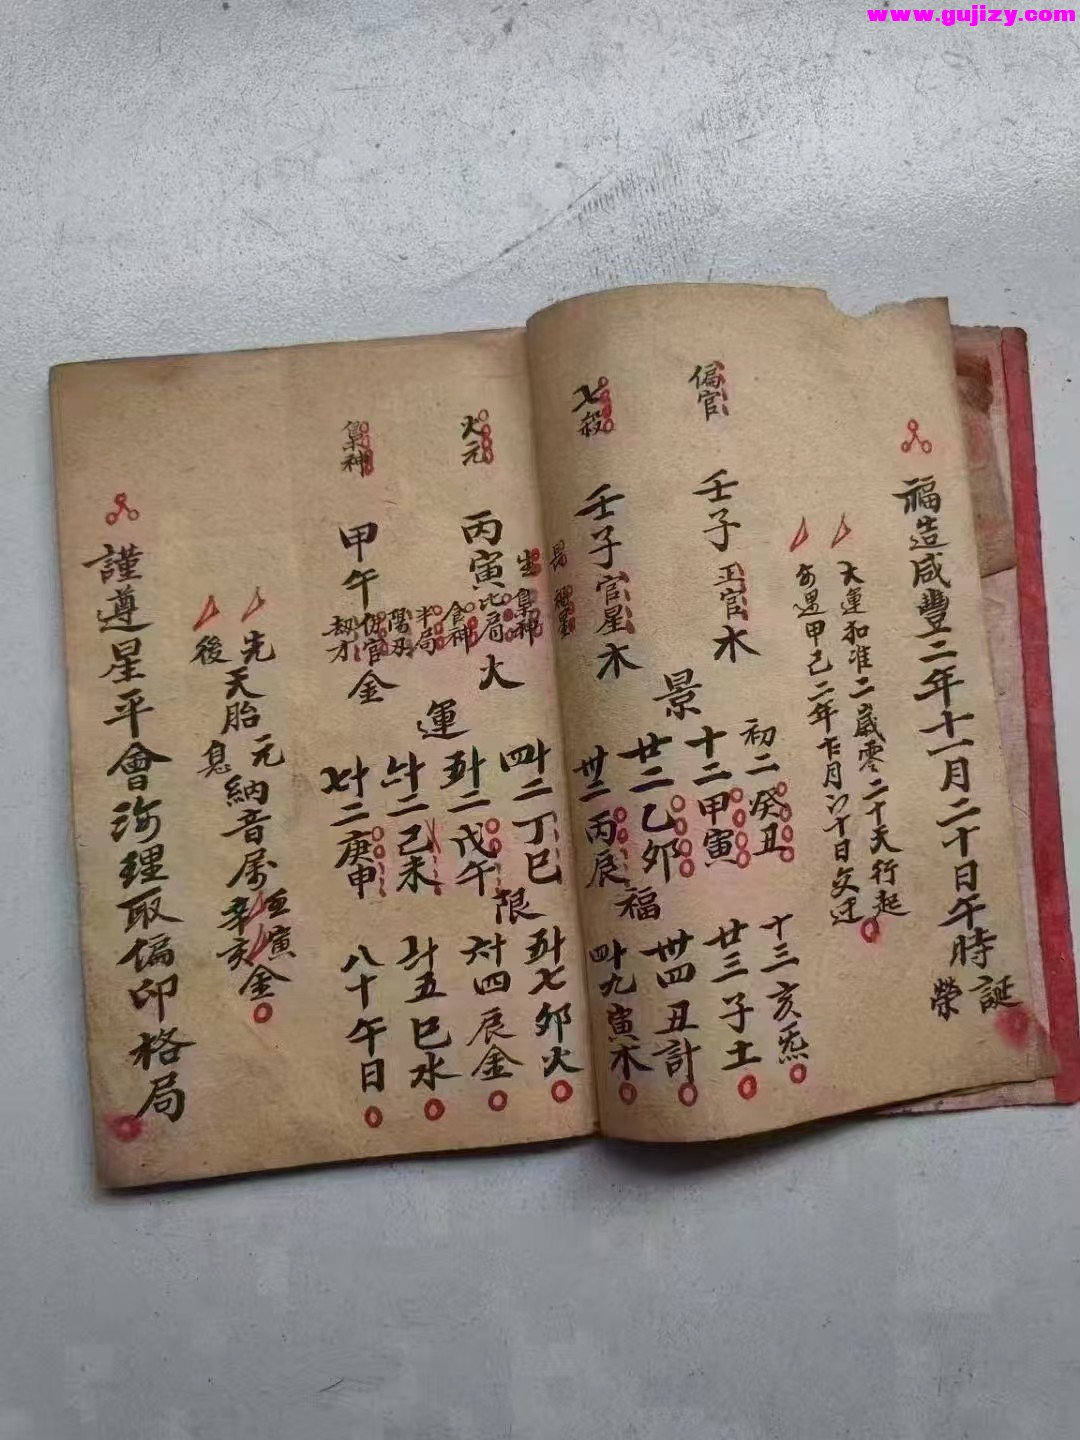 www.gujizy.com
福造咸豐二年十一月二十日午時誕
榮
大運扣准二歲零二十天行起
每遇甲己二年
月
十日交迂
偏官
壬子正官木
七殺
壬子官星木
景
初二癸丑
十二甲寅
廿二乙卯
卅二丙辰
福
十三亥炁
廿三子土
卅四丑計
四十九寅木
火元
丙寅比局火
生梟神
食神
半局
梟神
甲午
傷官
劫才
金
運
四十二丁巳
五十二戊午
六十二己未
七十二庚申
限
五十七卯火
六十四辰金
七十五巳水
八十午日
先天胎元納音属壬寅金
後
息
辛亥
謹遵星平會海理取偏印格局